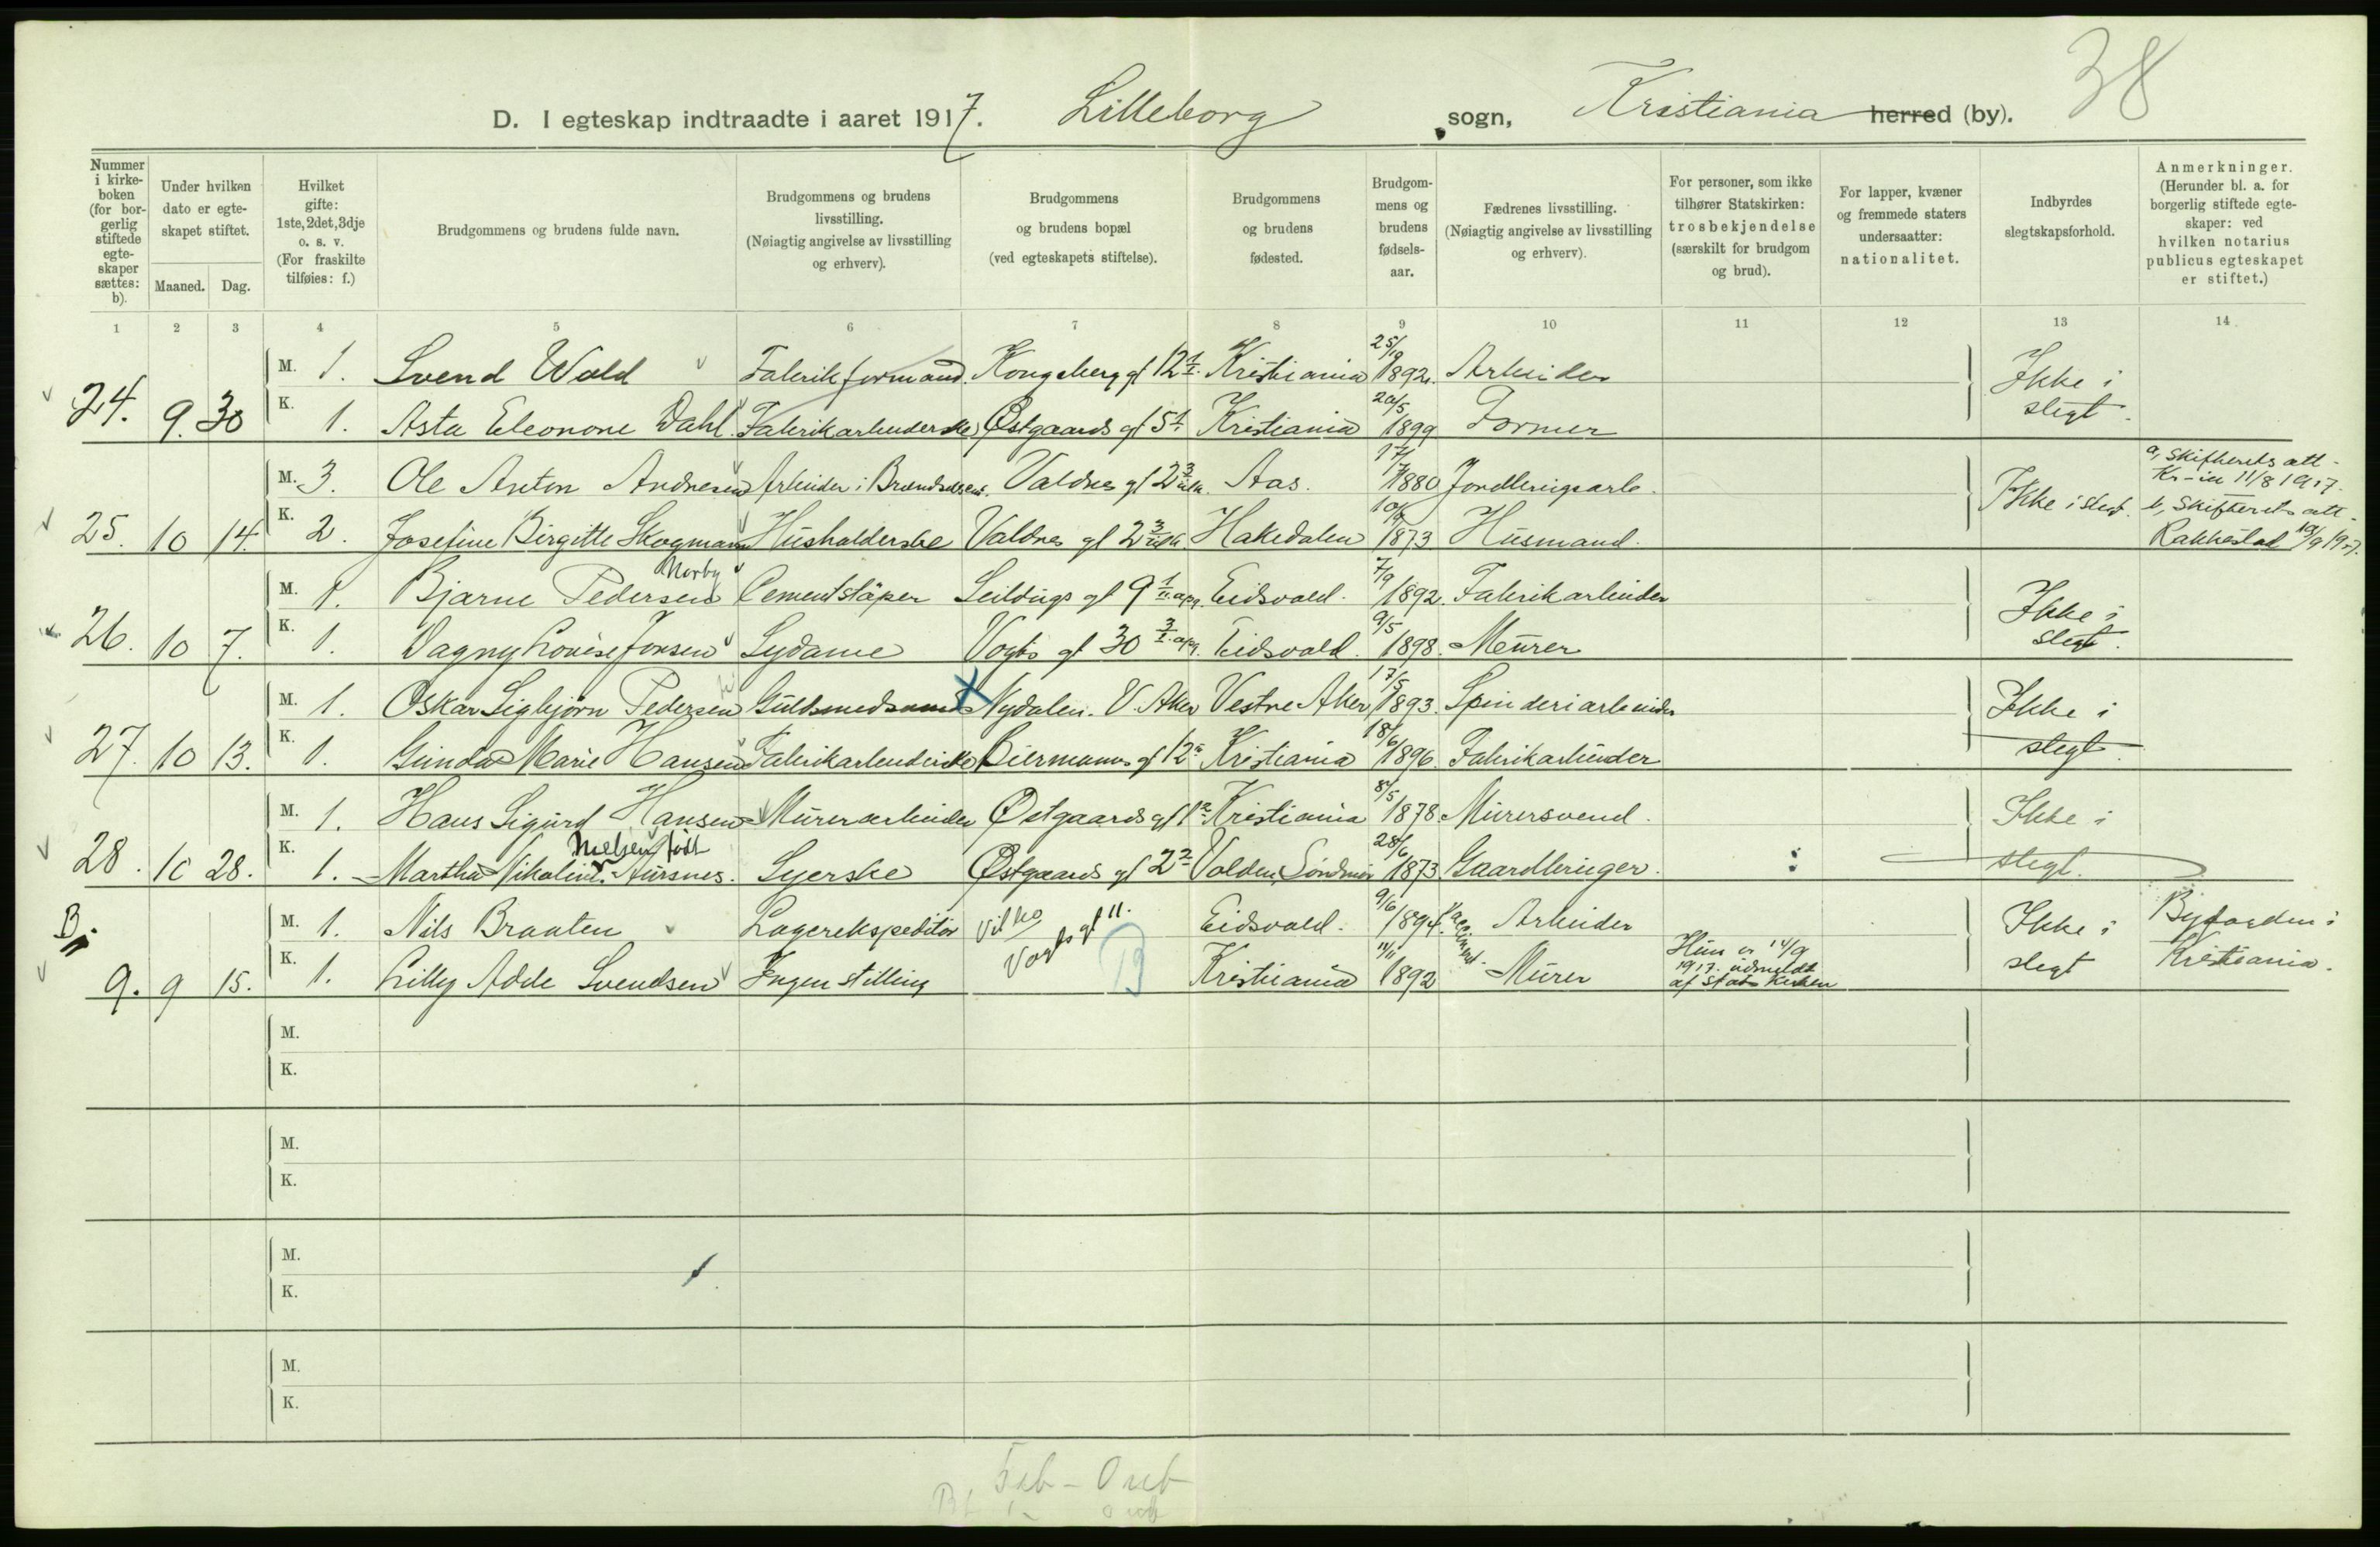 38
D. I egteskap indtraadte i aaret 1917. Lilleborg sogn, Kristiania herred (by).
Nummer i kirkeboken (for borgerlig stiftede egteskaper sættes: b).
Under hvilken dato er egteskapet stiftet.
Maaned. Dag.
Hvilket gifte: 1ste, 2det, 3dje o. s. v. (For fraskilte tilføies: f.)
Brudgommens og brudens fulde navn.
Brudgommens og brudens livsstilling. (Nøiagtig angivelse av livsstilling og erhverv).
Brudgommens og brudens bopæl (ved egteskapets stiftelse).
Brudgommens og brudens fødested.
Brudgommens og brudens fødselsaar.
Fædrenes livsstilling. (Nøiagtig angivelse av livsstilling og erhverv).
For personer, som ikke tilhører Statskirken: trosbekjendelse (særskilt for brudgom og brud).
For lapper, kvæner og fremmede staters undersaatter: nationalitet.
Indbyrdes slegtskapsforhold.
Anmerkninger. (Herunder bl. a. for borgerlig stiftede egteskaper: ved hvilken notarius publicus egteskapet er stiftet.)
1 2 3 4 5 6 7 8 9 10 11 12 13 14
M. 1. Svend Wold Fabrikformand. Kongsberg gt 12 1/I. Kristiania 25/10 1892. Arbeider Ikke i
24. 9. 30 K. 1. Asta Eleonore Dahl. Fabrikarbeiderske Østgaards gt 5 1/I Kristiania 20/5 1899 Former slegt.
M. 3. Ole Anton Andresen Arbeider i Valdres gt 2 3 Aas. 1880 Jordbrugsarb. Ikke i slegt. a, skifterets att - Kr-ia 11/8 1917.
25. 10 14. K. 2. Josefine Birgitte Skogmann Husholderske Valdres gt 2 3 Hakedalen 1873 Husmand. b, skifterets att - Rakkestad 19/9 1917.
M. 1. Bjarne Pedersen Norby Cementstøper Seildugs gt 9 1/II. opg. Eidsvold. 7/9 1892. Fabrikarbeider Ikke i
26. 10 7. K. 1. Dagny Lovise Jonsen Sydame Vogts gt 30 3/I. opg. Eidsvold. 9/5 1898. Murer slegt.
M. 1. Oskar Sigbjørn Pedersen Guldsmedsvend Nydalen. V. Aker Vestre Aker 17/5 1893. Spinderiarbeider Ikke i
27. 10 13. K. 1. Gunda Marie Hansen Fabrikarbeiderske Biermanns gt 12 Kristiania 18/6 1896. Fabrikarbeider slegt.
M. 1. Hans Sigurd Hansen Murerarbeider Østgaards gt 1 Kristiania 8/5 1878. Murersvend. Ikke i
28. 10 28. K. 1. Martha Nikoline Nielsen født Aursnes. Syerske Østgaards gt 2 Volden, Søndmør 28/6 1873. Gaardbruger. slegt.
B. M. 1. Nils Braaten Lagerekspeditør Vogts gt 11. Eidsvold. 9/6 1894. Arbeider Ikke i Byfogden i
9. 9 15. K. 1. Lilly Adele Svendsen Ingen stilling B Kristiania 11/11 1892 Murer Hun er 14/9 1917 udmeldt af Stats Kirken slegt Kristiania.
M.
K.
M.
K.
M.
K.
M.
K.